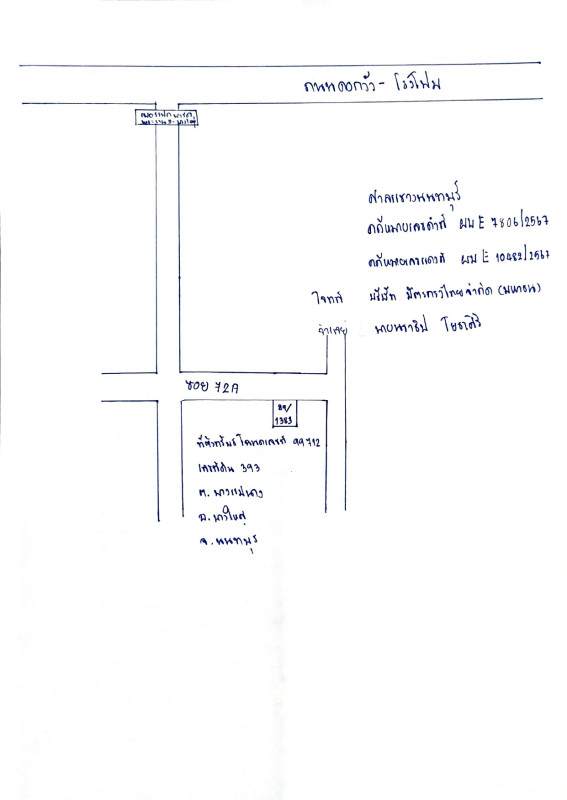 ถนนดอกวัว - โรงโฟม
ศาลแขวงนนทบุรี
คดีหมายเลขดำที่ ผบ E 7806/2567
คดีหมายเลขแดงที่ ผบ E 10482/2567
โจทก์ บริษัท มิตรควิไทยจำกัด (มหาชน)
จำเลย นายนาธิป
ซอย 72A
89/
1383
ที่ตั้งทรัพย์ โฉนดเลขที่ 99712
เลขที่ดิน 393
ต. บางแม่นาง
อ. บางใหญ่
จ. นนทบุรี